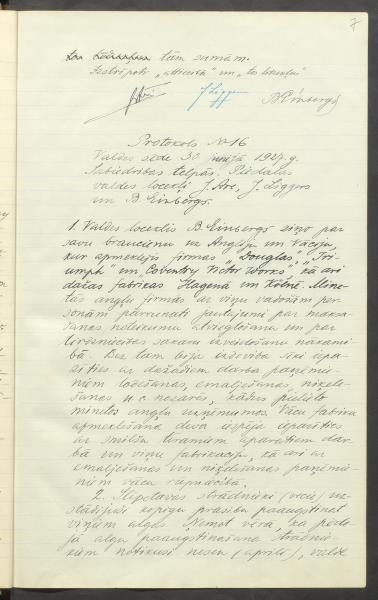 7
tām sumām.
Izstrīpots „attiecībā” un „
J. Liggers B Einbergs
Protokols № 16
Valdes sēde 30. junijā 1927. g.
Sabiedrības telpās. Piedalās
valdes locekļi J. Are, J. Liggers
un B. Einbergs.
1. Valdes loceklis B. Einbergs ziņo par
savu braucienu uz Angliju un Vāciju,
kur apmeklējis firmas „Douglas”, „Tri-
umph” un „Coventry Victor Works”, kā arī
dažas fabrikas Hagenā un Ķelnē. Minē-
tās angļu firmās ar viņu vadošām per-
sonām pārrunāti jautājumi par maksā-
šanas noteikumu atvieglošanu un par
tirdzniecības sakaru izveidošanu nākamī-
bā. Bez tam bija izdevība tikt iepa-
zīties ar dažādiem darba paņēmie-
niem lodēšanas, emaljēšanas, niķelē-
šanas u.c. nozarēs, kādus pielieto
minētos angļu uzņēmumos. Vācu fabriku
apmeklēšana deva iespēju iepazīties
ar smilšu tīrāmiem aparātiem dar-
bā un viņu fabrikāciju, kā arī ar
emaljēšanas un niķelēšanas paņēmie-
niem vācu rūpniecībā.
2. Slēptavas strādnieki (veci) uz-
stādījuši kopēju prasību paaugstināt
viņiem algas. Ņemot vērā, ka pēdē-
jā algu paaugstināšana strādnie-
kiem notikusi nesen (aprīlī), valde